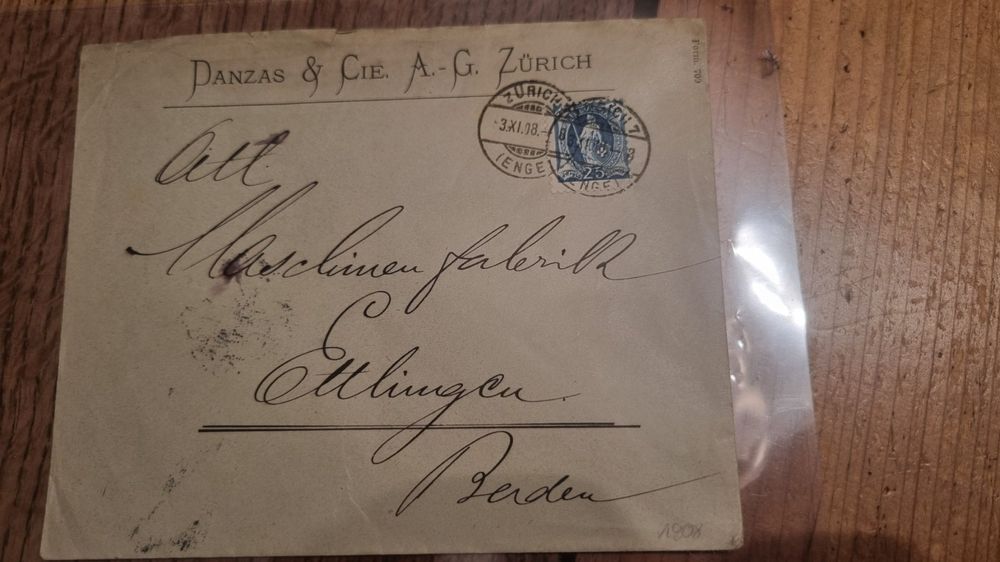 DANZAS & CIE. A.-G. ZÜRICH
Form. 709
ZÜRICH
-3.XI.08.-
(ENGE)
ZÜRICH 7
(ENGE)
25
Att.
Maschinenfabrik
Ettlingen.
Baden
1908